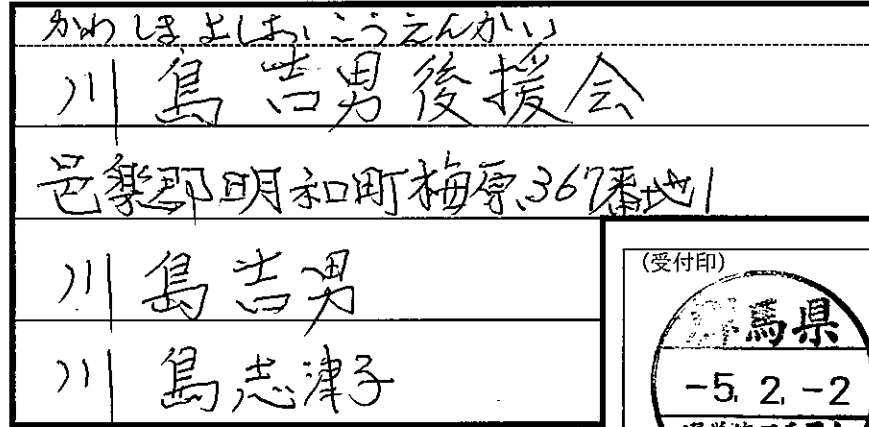 かわしまよしおこうえんかい
川島吉男後援会
邑楽郡明和町梅原367番地1
川島吉男
川島志津子
(受付印)
群馬県
-5. 2. -2